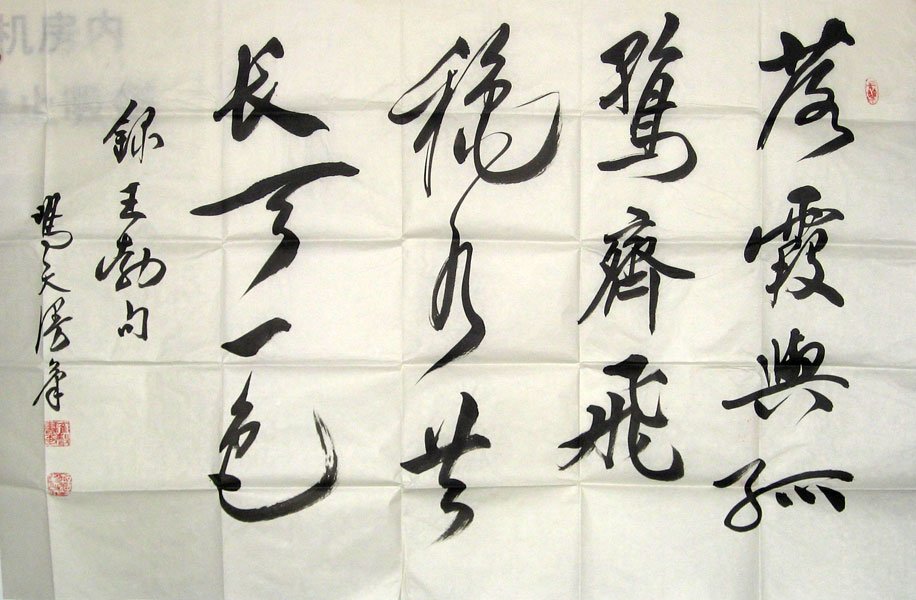 落霞與孤
鶩齊飛
秋水共
長天一色
錄王勃句
天
筆
机房内